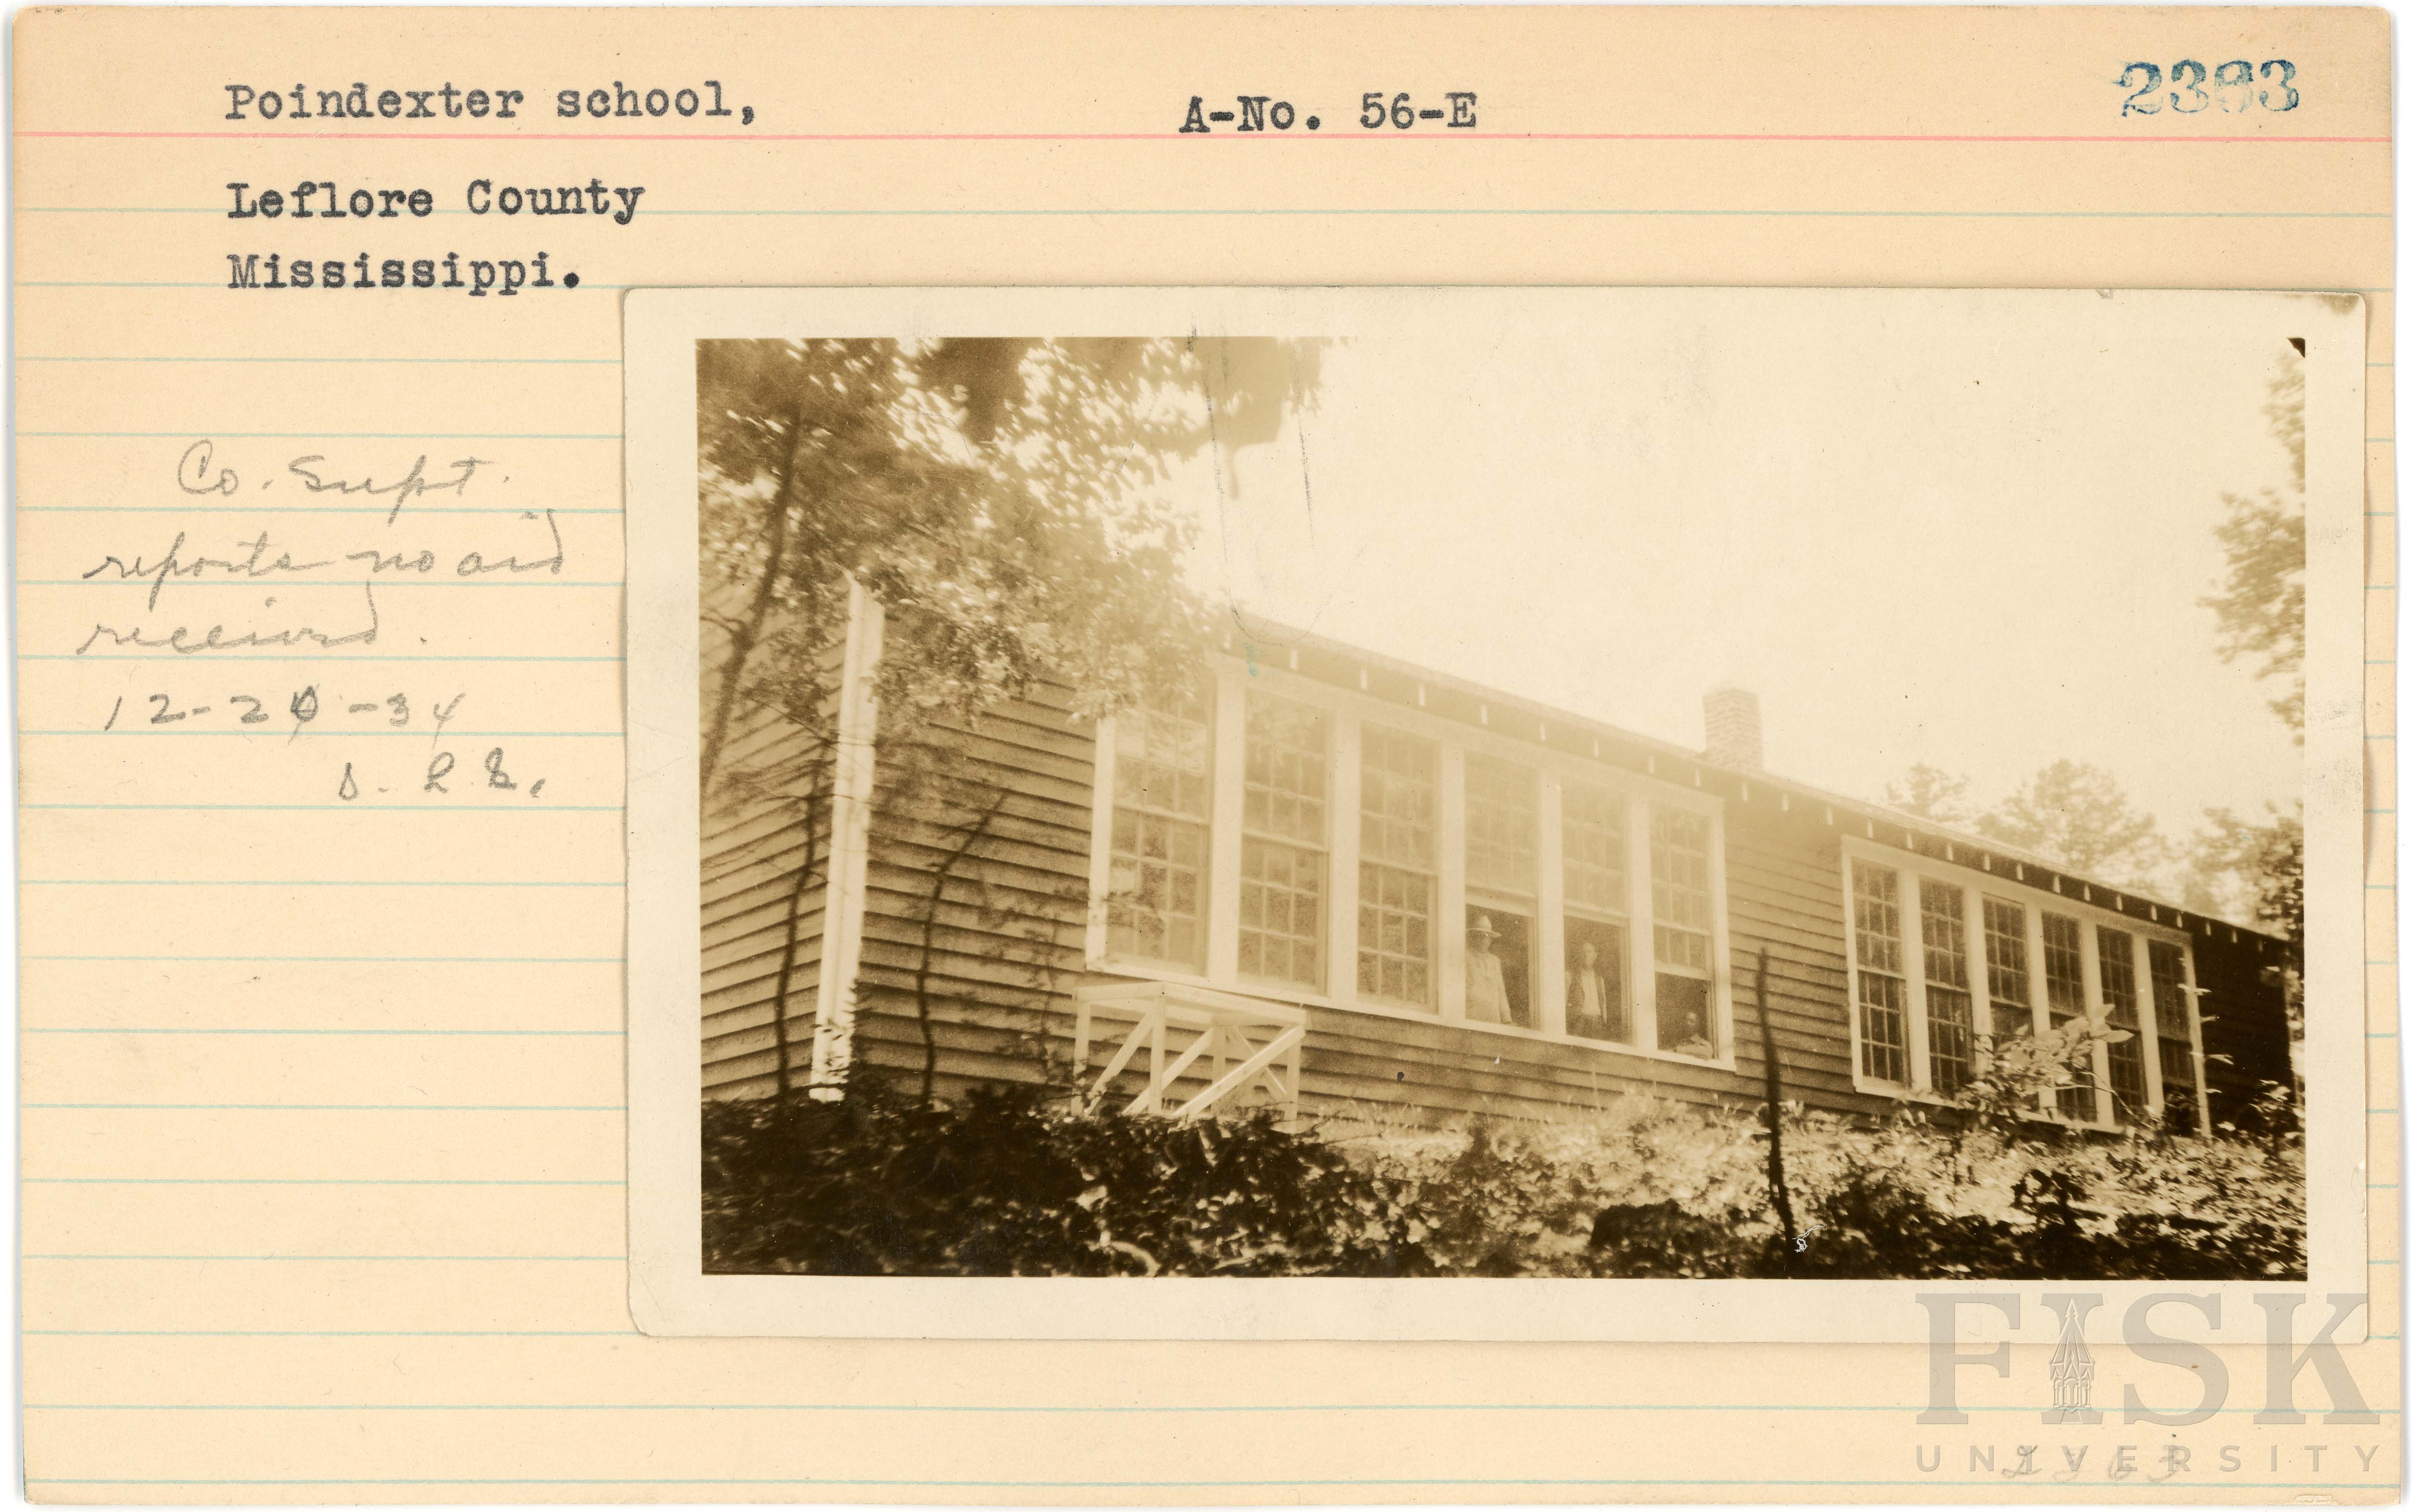 Poindexter school,
A-No. 56-E
Leflore County
Mississippi.
Co. Supt.
reports no aid
received.
12-20-34
FISK
UNIVERSITY